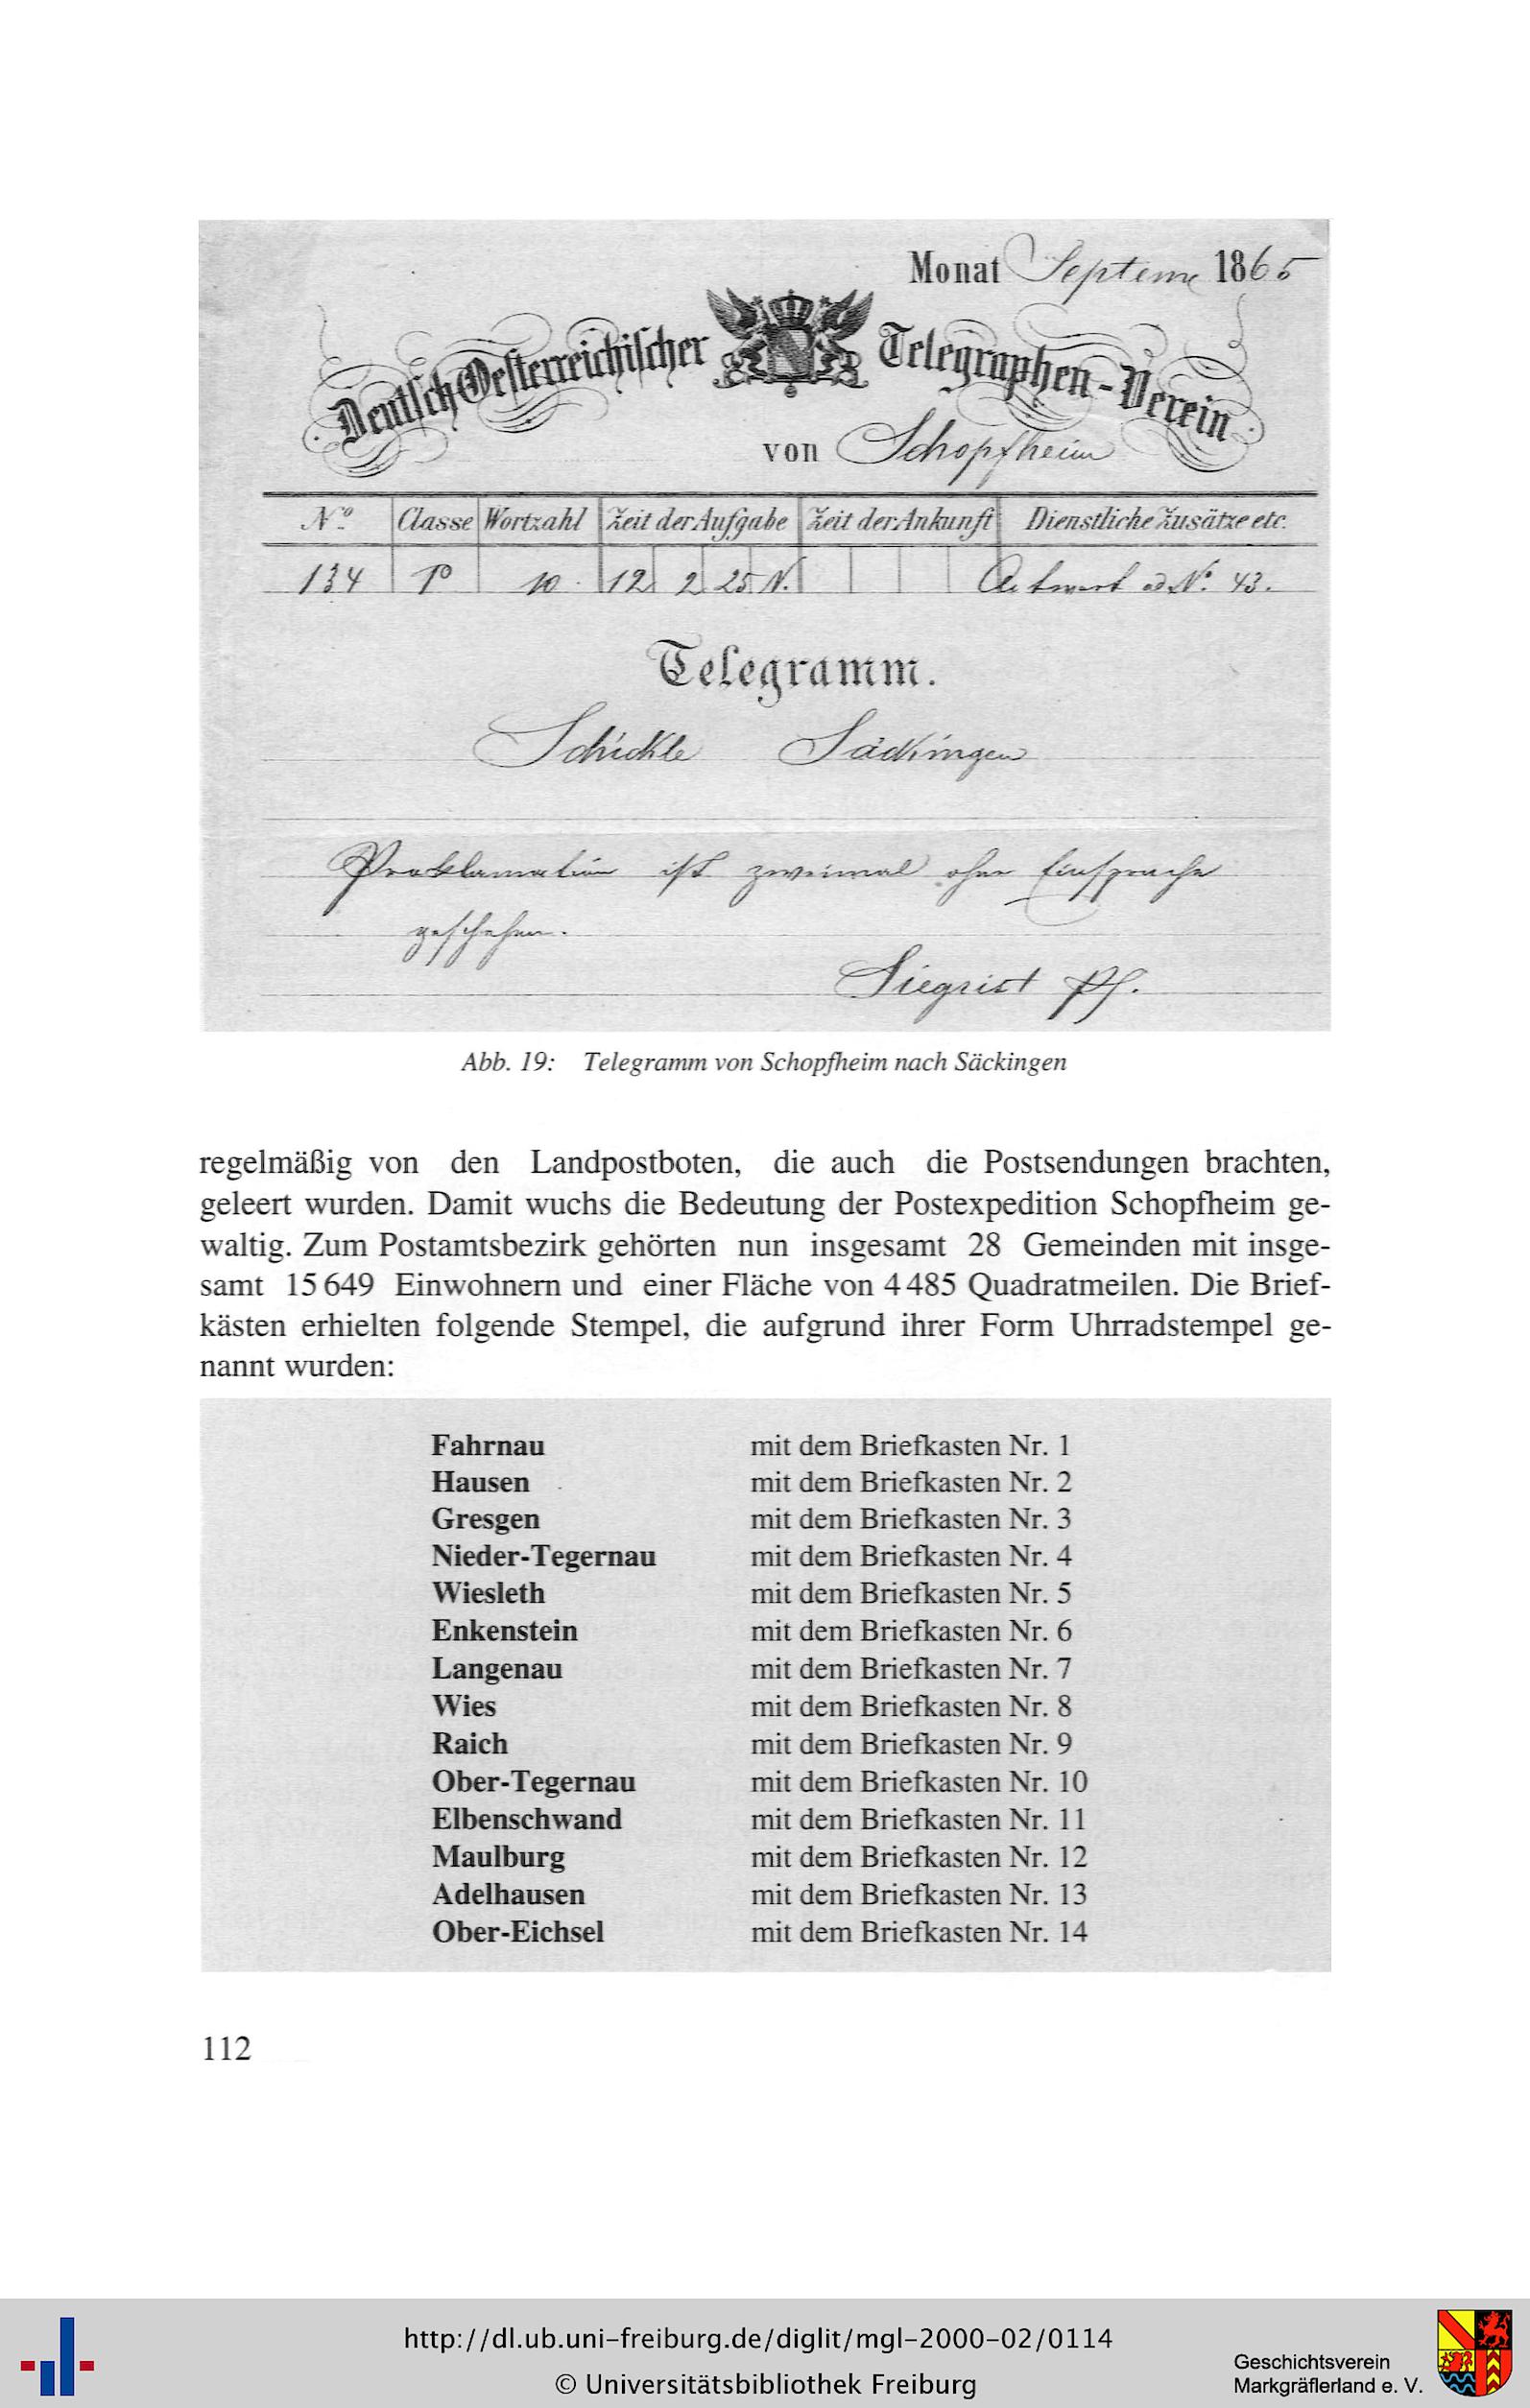 Monat Septemr 1865
Deutsch Oesterreichischer Telegraphen-Verein
von Schopfheim
No Classe Wortzahl Zeit der Aufgabe Zeit der Ankunft Dienstliche Zusätze etc.
134 10 12 2 25 N. Antwort ad No 43.
Telegramm.
Schickle Säckingen
Proklamation ist zweimal ohne Einsprache
geschehen.
Siegrist Pf.
Abb. 19: Telegramm von Schopfheim nach Säckingen
regelmäßig von den Landpostboten, die auch die Postsendungen brachten,
geleert wurden. Damit wuchs die Bedeutung der Postexpedition Schopfheim ge-
waltig. Zum Postamtsbezirk gehörten nun insgesamt 28 Gemeinden mit insge-
samt 15 649 Einwohnern und einer Fläche von 4 485 Quadratmeilen. Die Brief-
kästen erhielten folgende Stempel, die aufgrund ihrer Form Uhrradstempel ge-
nannt wurden:
Fahrnau mit dem Briefkasten Nr. 1
Hausen mit dem Briefkasten Nr. 2
Gresgen mit dem Briefkasten Nr. 3
Nieder-Tegernau mit dem Briefkasten Nr. 4
Wiesleth mit dem Briefkasten Nr. 5
Enkenstein mit dem Briefkasten Nr. 6
Langenau mit dem Briefkasten Nr. 7
Wies mit dem Briefkasten Nr. 8
Raich mit dem Briefkasten Nr. 9
Ober-Tegernau mit dem Briefkasten Nr. 10
Elbenschwand mit dem Briefkasten Nr. 11
Maulburg mit dem Briefkasten Nr. 12
Adelhausen mit dem Briefkasten Nr. 13
Ober-Eichsel mit dem Briefkasten Nr. 14
112
http://dl.ub.uni-freiburg.de/diglit/mgl-2000-02/0114
© Universitätsbibliothek Freiburg
Geschichtsverein
Markgräflerland e. V.